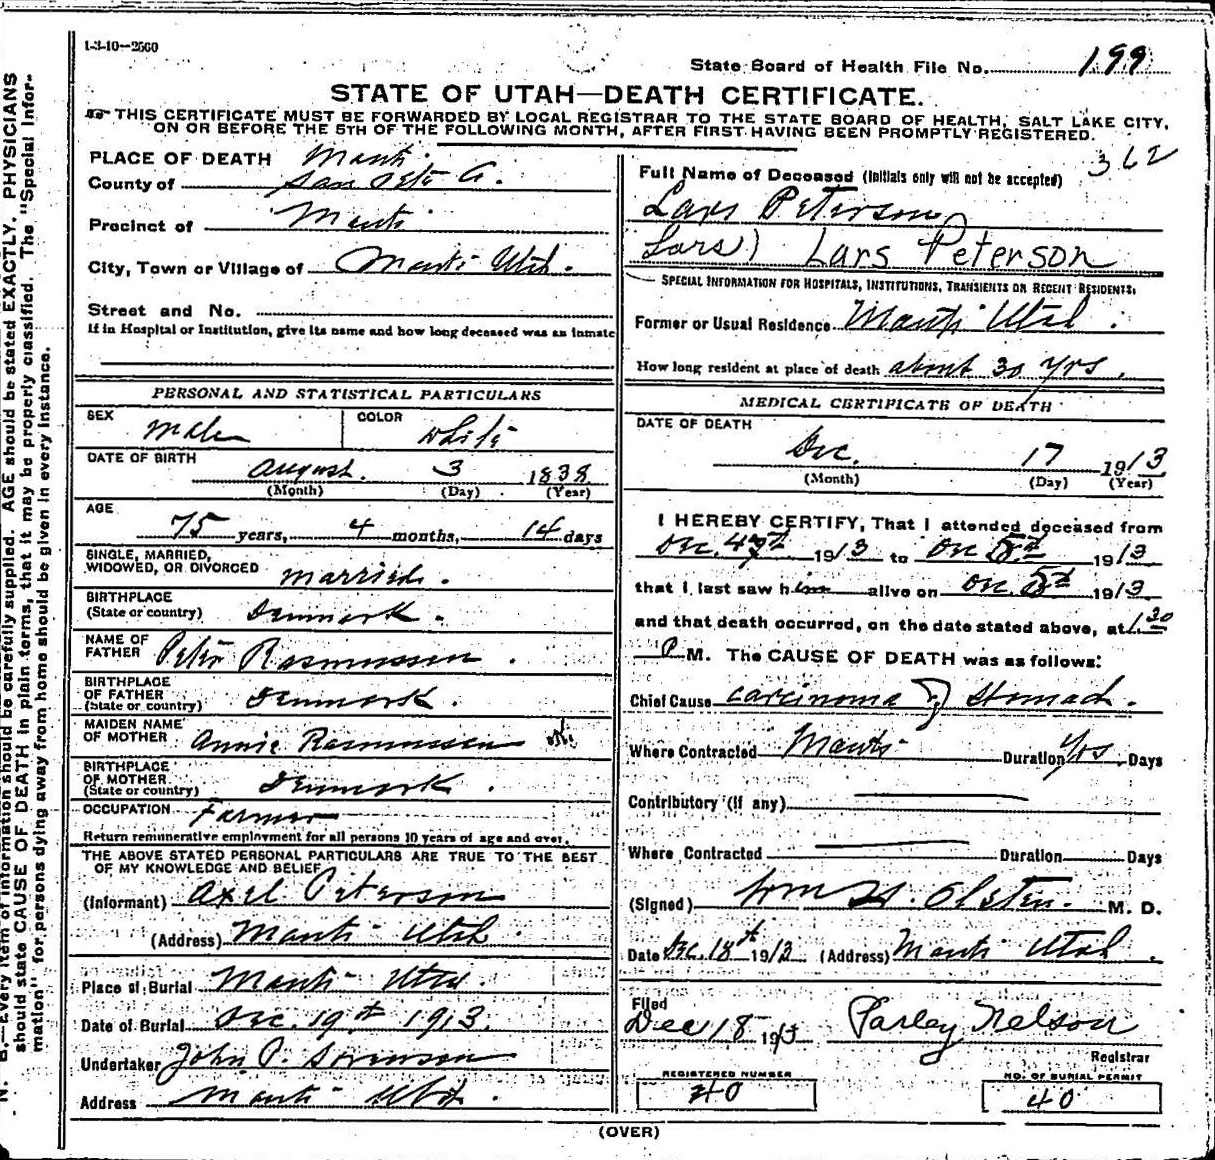 1-3-10—2500
State Board of Health File No. 199
STATE OF UTAH—DEATH CERTIFICATE.
THIS CERTIFICATE MUST BE FORWARDED BY LOCAL REGISTRAR TO THE STATE BOARD OF HEALTH, SALT LAKE CITY,
ON OR BEFORE THE 5TH OF THE FOLLOWING MONTH, AFTER FIRST HAVING BEEN PROMPTLY REGISTERED.
362
PLACE OF DEATH Manti
County of San Pete Co.
Precinct of Manti
City, Town or Village of Manti Utah.
Street and No.
If in Hospital or Institution, give its name and how long deceased was an inmate
PERSONAL AND STATISTICAL PARTICULARS
SEX Male COLOR White
DATE OF BIRTH August 3 1838
(Month) (Day) (Year)
AGE 75 years, 4 months, 14 days
SINGLE, MARRIED,
WIDOWED, OR DIVORCED Married.
BIRTHPLACE
(State or country) Denmark.
NAME OF
FATHER Peter Rasmussen.
BIRTHPLACE
OF FATHER
(State or country) Denmark.
MAIDEN NAME
OF MOTHER Annie Rasmussen
BIRTHPLACE
OF MOTHER
(State or country) Denmark.
OCCUPATION Farmer
Return remunerative employment for all persons 10 years of age and over.
THE ABOVE STATED PERSONAL PARTICULARS ARE TRUE TO THE BEST
OF MY KNOWLEDGE AND BELIEF
(Informant) Axel Peterson
(Address) Manti Utah.
Place of Burial Manti Utah
Date of Burial Dec. 19th 1913.
Undertaker John P. Sorenson
Address Manti Utah.
Full Name of Deceased (Initials only will not be accepted)
Lars Peterson
Lars) Lars Peterson
SPECIAL INFORMATION FOR HOSPITALS, INSTITUTIONS, TRANSIENTS OR RECENT RESIDENTS.
Former or Usual Residence Manti Utah.
How long resident at place of death about 30 yrs.
MEDICAL CERTIFICATE OF DEATH
DATE OF DEATH
Dec. 17 1913
(Month) (Day) (Year)
I HEREBY CERTIFY, That I attended deceased from
Dec. 1913 to Dec 1913
that I last saw him alive on Dec. 1913
and that death occurred, on the date stated above, at 1.30
P M. The CAUSE OF DEATH was as follows:
Chief Cause Carcinoma of Stomach.
Where Contracted Manti Duration Yrs Days
Contributory (if any)
Where Contracted Duration Days
(Signed) Wm H. Olsten. M. D.
Date Dec. 18th 1913 (Address) Manti Utah.
Filed
Dec 18 1913 Parley Nelson
Registrar
REGISTERED NUMBER
40
NO. OF BURIAL PERMIT
40
(OVER)
N. B.—Every item of information should be carefully supplied. AGE should be stated EXACTLY. PHYSICIANS
should state CAUSE OF DEATH in plain terms, that it may be properly classified. The "Special Infor-
mation" for persons dying away from home should be given in every instance.